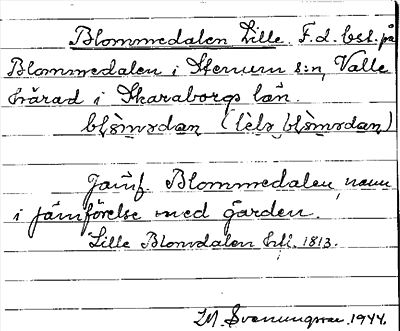 Blommedalen Lille. F.d. bst. på
Blommedalen i Stenum s:n, Valle
härad i Skaraborgs län.
Jämf. Blommedalen, namn
i jämförelse med gården.
Lille Blomdalen Erl. 1813.
M. Svenungsson 1944.